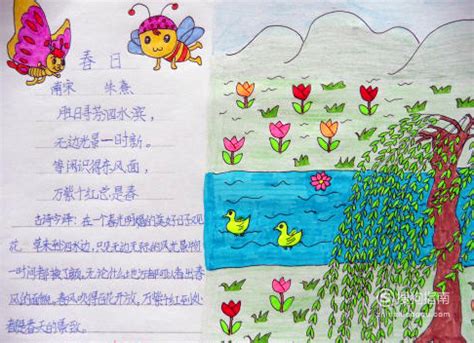 春日
南宋 朱熹
胜日寻芳泗水滨，
无边光景一时新。
等闲识得东风面，
万紫千红总是春
古诗今译：在一个春光明媚的美好日子观
花 草来到泗水边，只见无边无际的风光景物
一时间都换了颜，无论什么地方都可以看出春
风的面貌。春风吹得百花开放，万紫千红到处
都是春天的景致。
指南